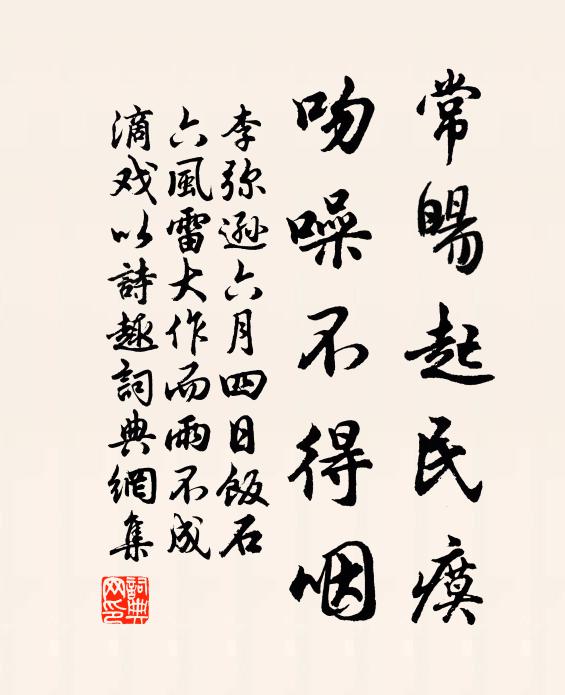 常暘起民瘼
吻噪不得咽
李弥遜六月四日飯石
六風雷大作而雨不成
滴戏以詩趣詞典網集
詞典网印